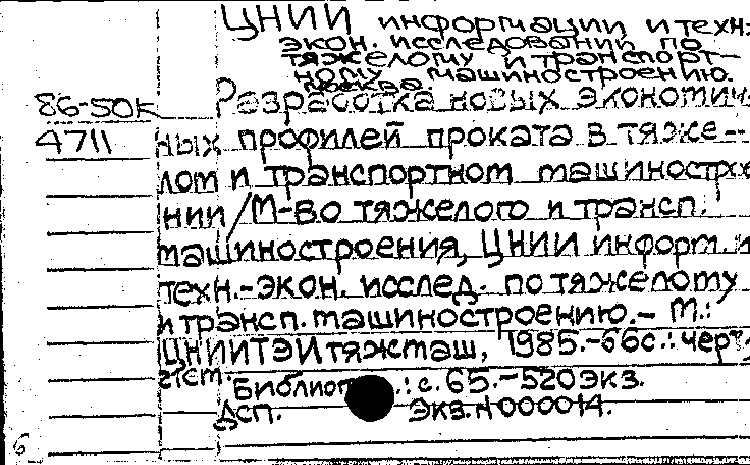 ЦНИИ информации и техн.
экон. исследований по
тяжелому и транспорт-
ному машиностроению.
Москва
86-50К Разработка новых экономич-
4711 ных профилей проката в тяже-
лом и транспортном машиностро
нии/М-во тяжелого и трансп.
машиностроения, ЦНИИ информ. и
техн.-экон. исслед. по тяжелому
и трансп. машиностроению.- М.:
ЦНИИТЭИтяжмаш, 1985.-66с.: черт.
Библиог.: с. 65.-520экз.
Дсп. Экз.N000014.
6